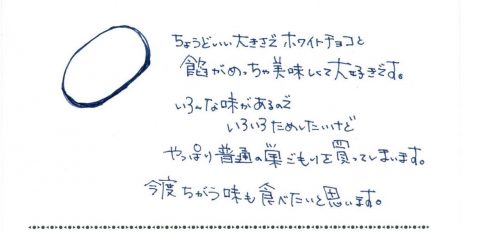 ちょうどいい大きさでホワイトチョコと
餡がめっちゃ美味しくて大好きです。
いろんな味があるので
いろいろためしたいけど
やっぱり普通の巣ごもりを買ってしまいます。
今度ちがう味も食べたいと思います。